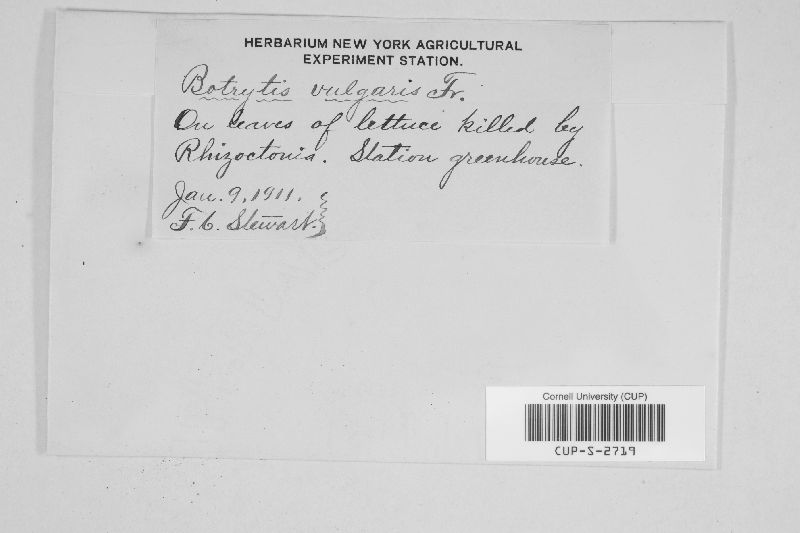 HERBARIUM NEW YORK AGRICULTURAL
EXPERIMENT STATION.
Botrytis vulgaris Fr.
On leaves of lettuce killed by
Rhizoctonia. Station greenhouse.
Jan. 9, 1911.
F. C. Stewart.
Cornell University (CUP)
CUP-S-2719